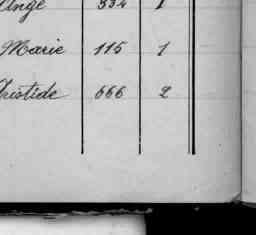 Ange 334 1
Marie 115 1
ristide 666 2